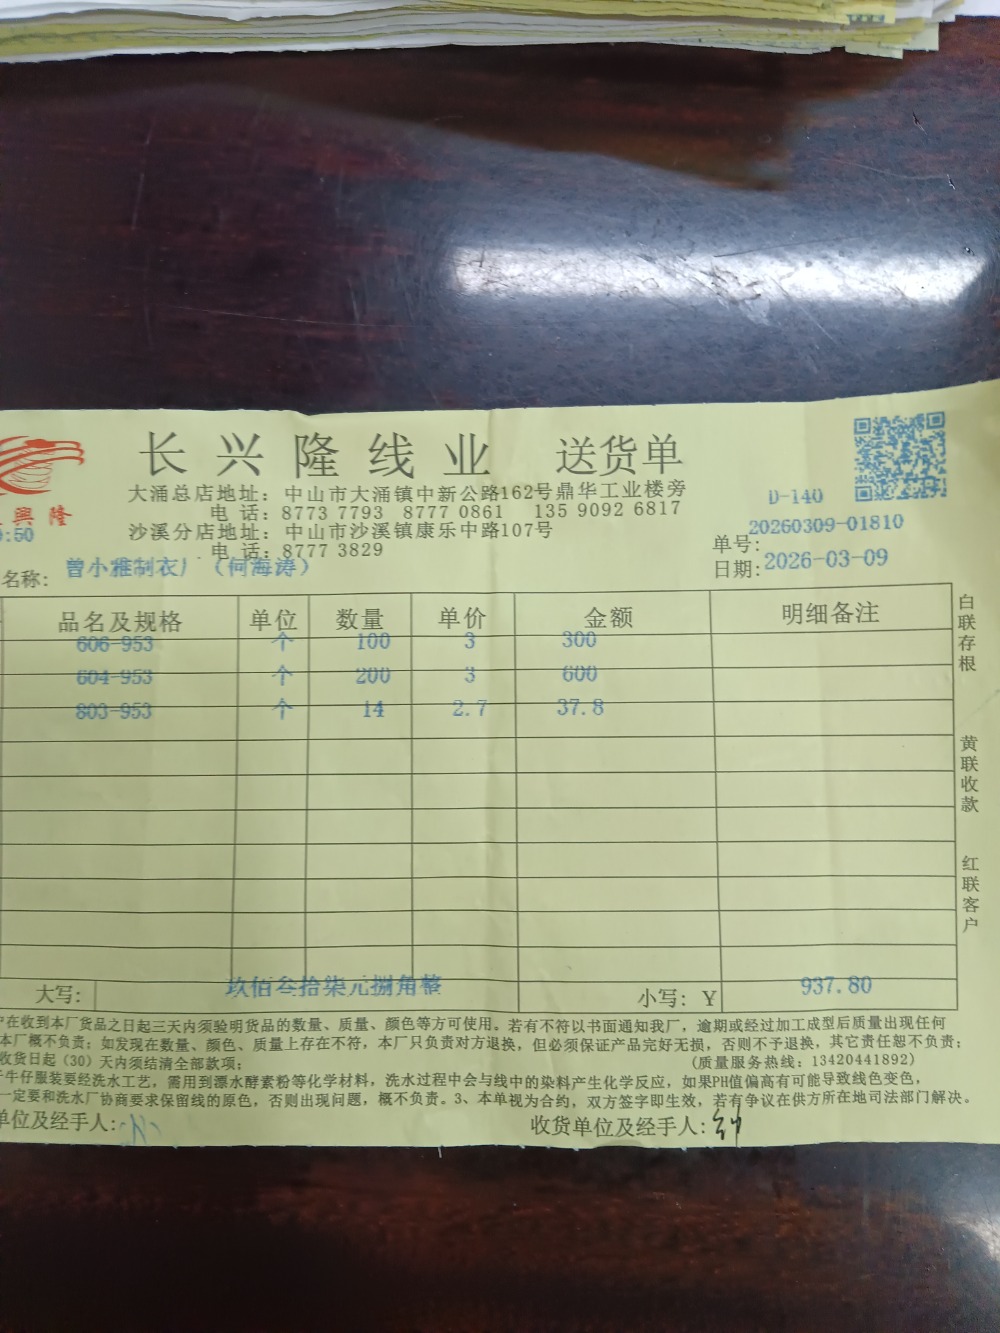 长兴隆线业 送货单
大涌总店地址：中山市大涌镇中新公路162号鼎华工业楼旁
电 话：8773 7793 8777 0861 135 9092 6817
沙溪分店地址：中山市沙溪镇康乐中路107号
电 话：8777 3829
興隆
:50
D-140
单号：20260309-01810
日期：2026-03-09
名称：曾小雅制衣厂（何海涛）
品名及规格 单位 数量 单价 金额 明细备注
606-953 个 100 3 300
604-953 个 200 3 600
803-953 个 14 2.7 37.8
大写：玖佰叁拾柒元捌角整 小写：Y 937.80
白联存根
黄联收款
红联客户
在收到本厂货品之日起三天内须验明货品的数量、质量、颜色等方可使用。若有不符以书面通知我厂，逾期或经过加工成型后质量出现任何
本厂概不负责；如发现在数量、颜色、质量上存在不符，本厂只负责对方退换，但必须保证产品完好无损，否则不予退换，其它责任恕不负责；
收货日起（30）天内须结清全部款项； （质量服务热线：13420441892）
牛仔服装要经洗水工艺，需用到漂水酵素粉等化学材料，洗水过程中会与线中的染料产生化学反应，如果PH值偏高有可能导致线色变色，
一定要和洗水厂协商要求保留线的原色，否则出现问题，概不负责。3、本单视为合约，双方签字即生效，若有争议在供方所在地司法部门解决。
单位及经手人： 收货单位及经手人：